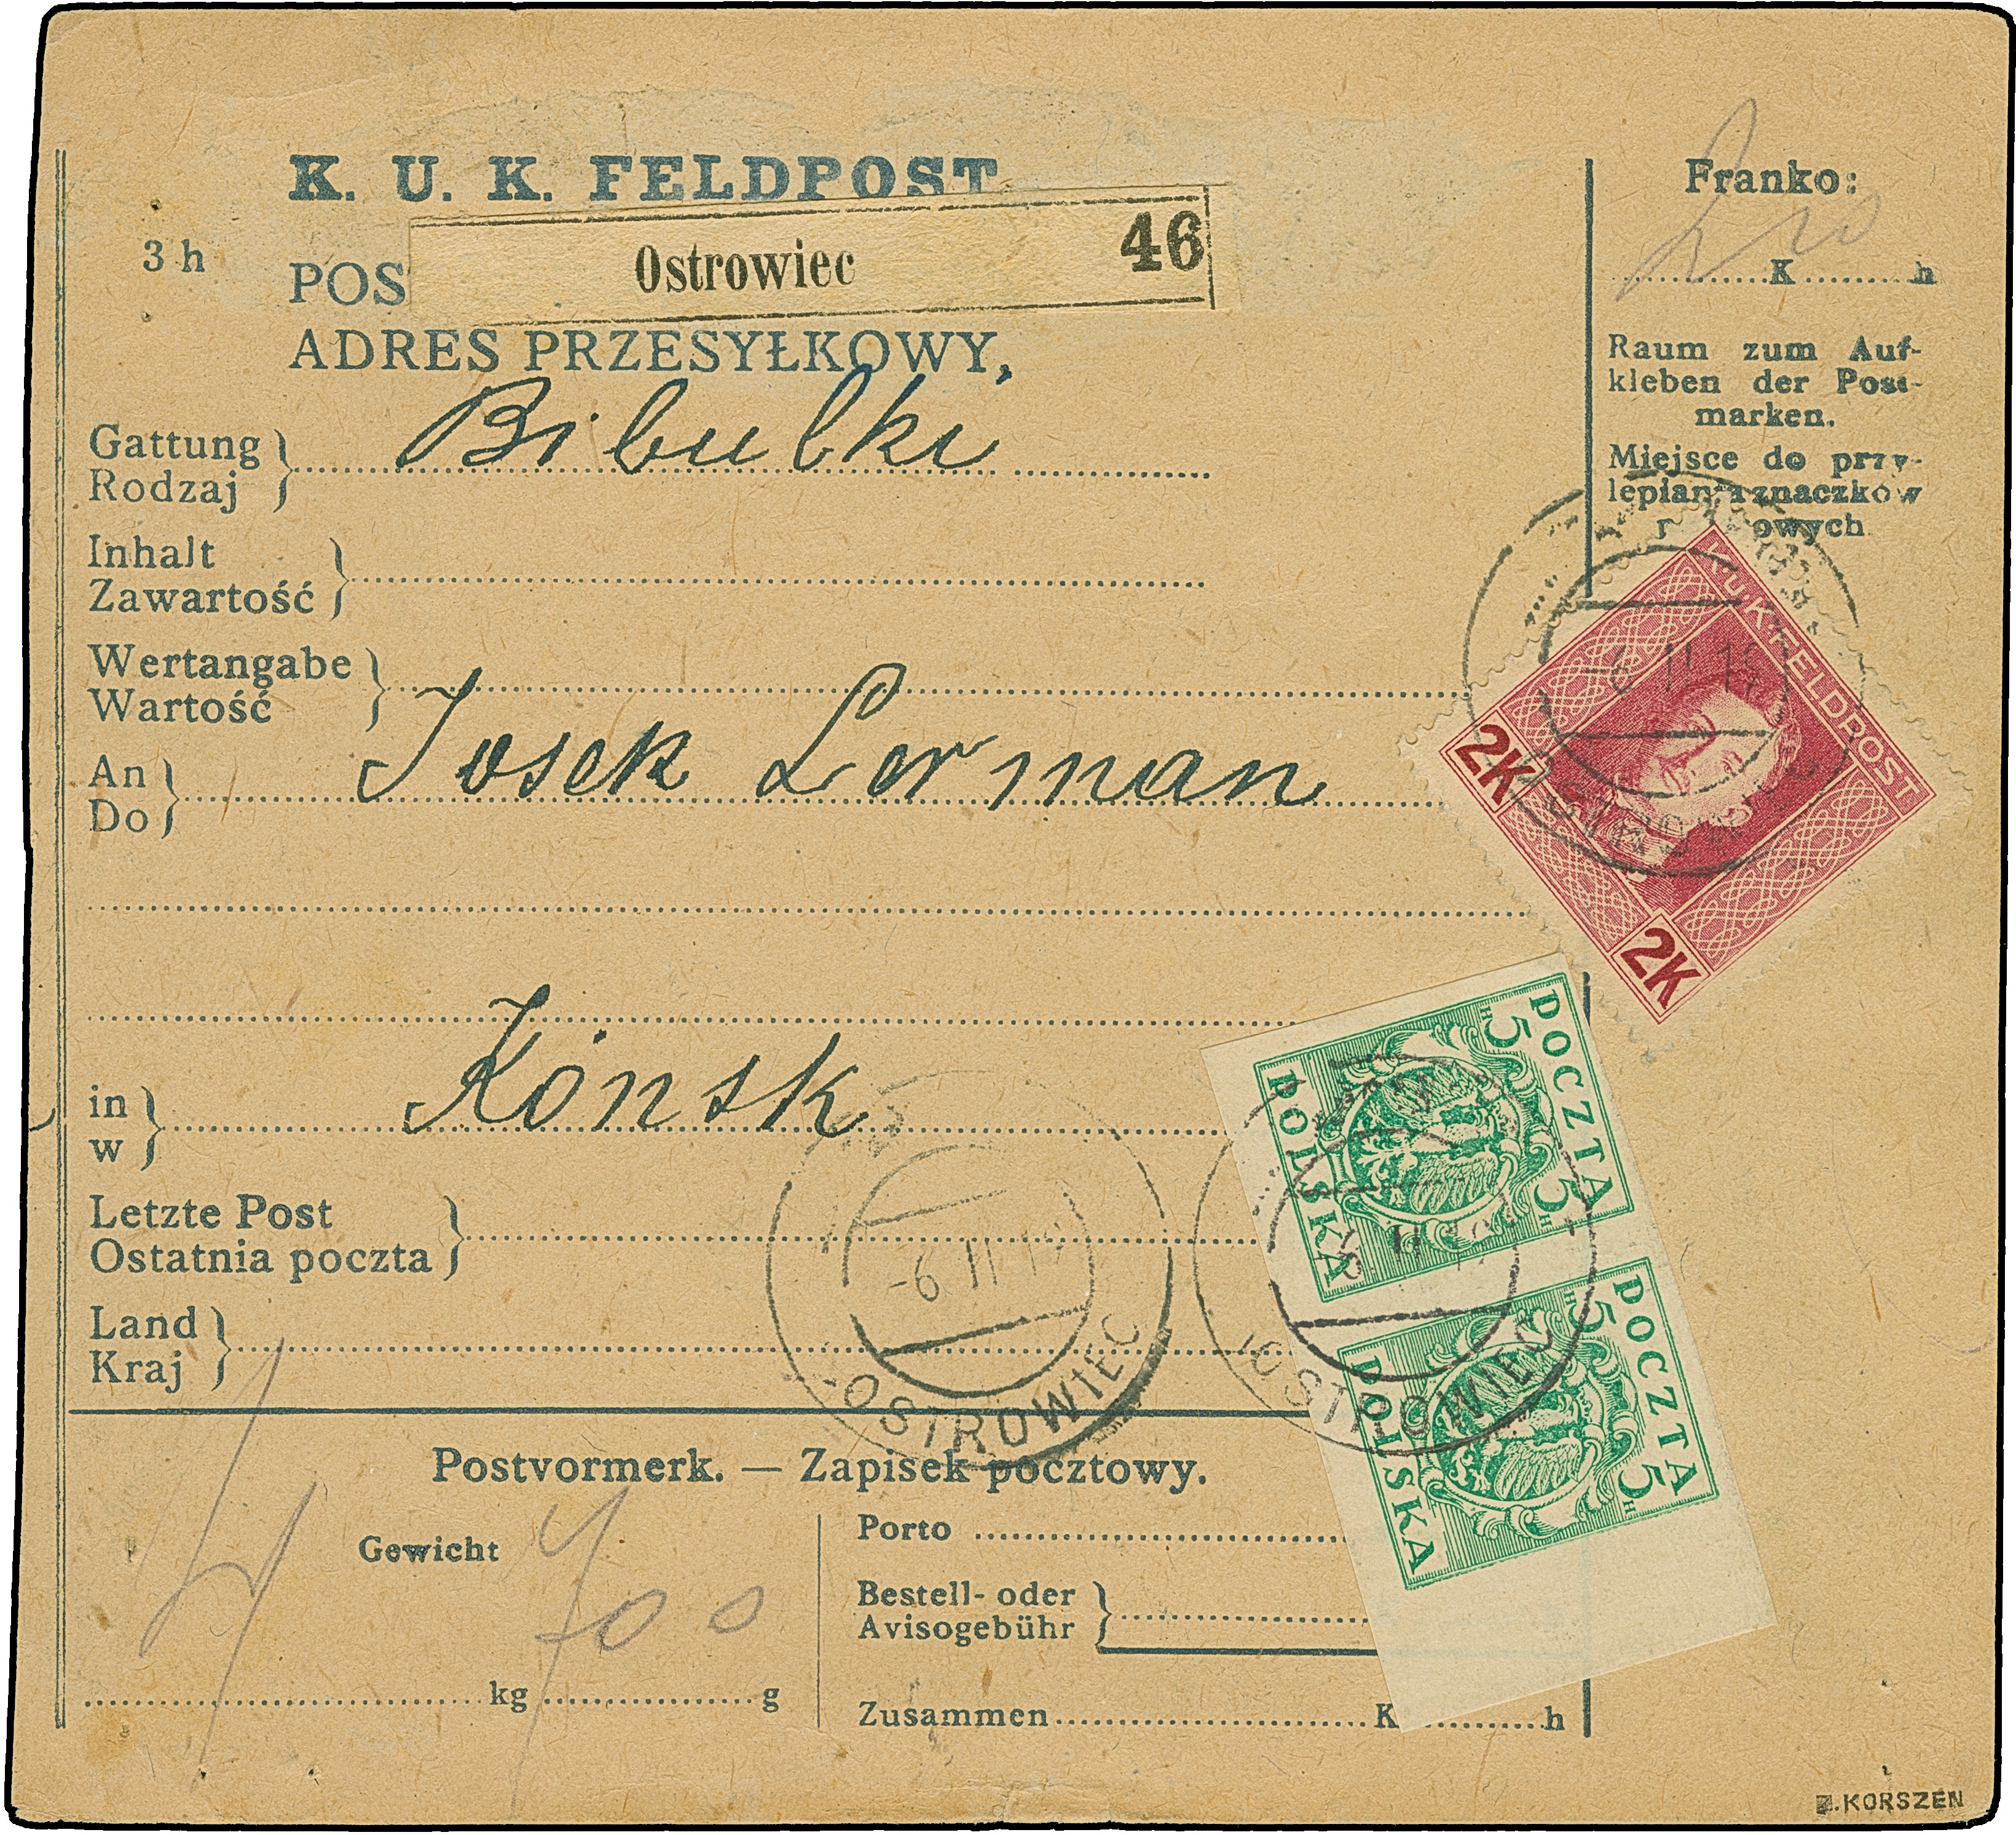 K. U. K. FELDPOST
3 h
POS
Ostrowiec 46
ADRES PRZESYŁKOWY,
Franko:
K h
Raum zum Auf-
kleben der Post-
marken.
Miejsce do przy-
lepiania znaczków
owych
Gattung
Rodzaj
Bibulki
Inhalt
Zawartość
Wertangabe
Wartość
An
Do
Josek Lerman
K.U.K. FELDPOST
2K
2K
-6 II 19
in
w
Końsk
Letzte Post
Ostatnia poczta
Land
Kraj
-6 II 19
OSTROWIEC
POCZTA
5 H 5 H
POLSKA
OSTROWIEC
POCZTA
5 H 5 H
POLSKA
Postvormerk. — Zapisek pocztowy.
Gewicht
kg g
Porto
Bestell- oder
Avisogebühr
Zusammen K h
KORSZEŃ